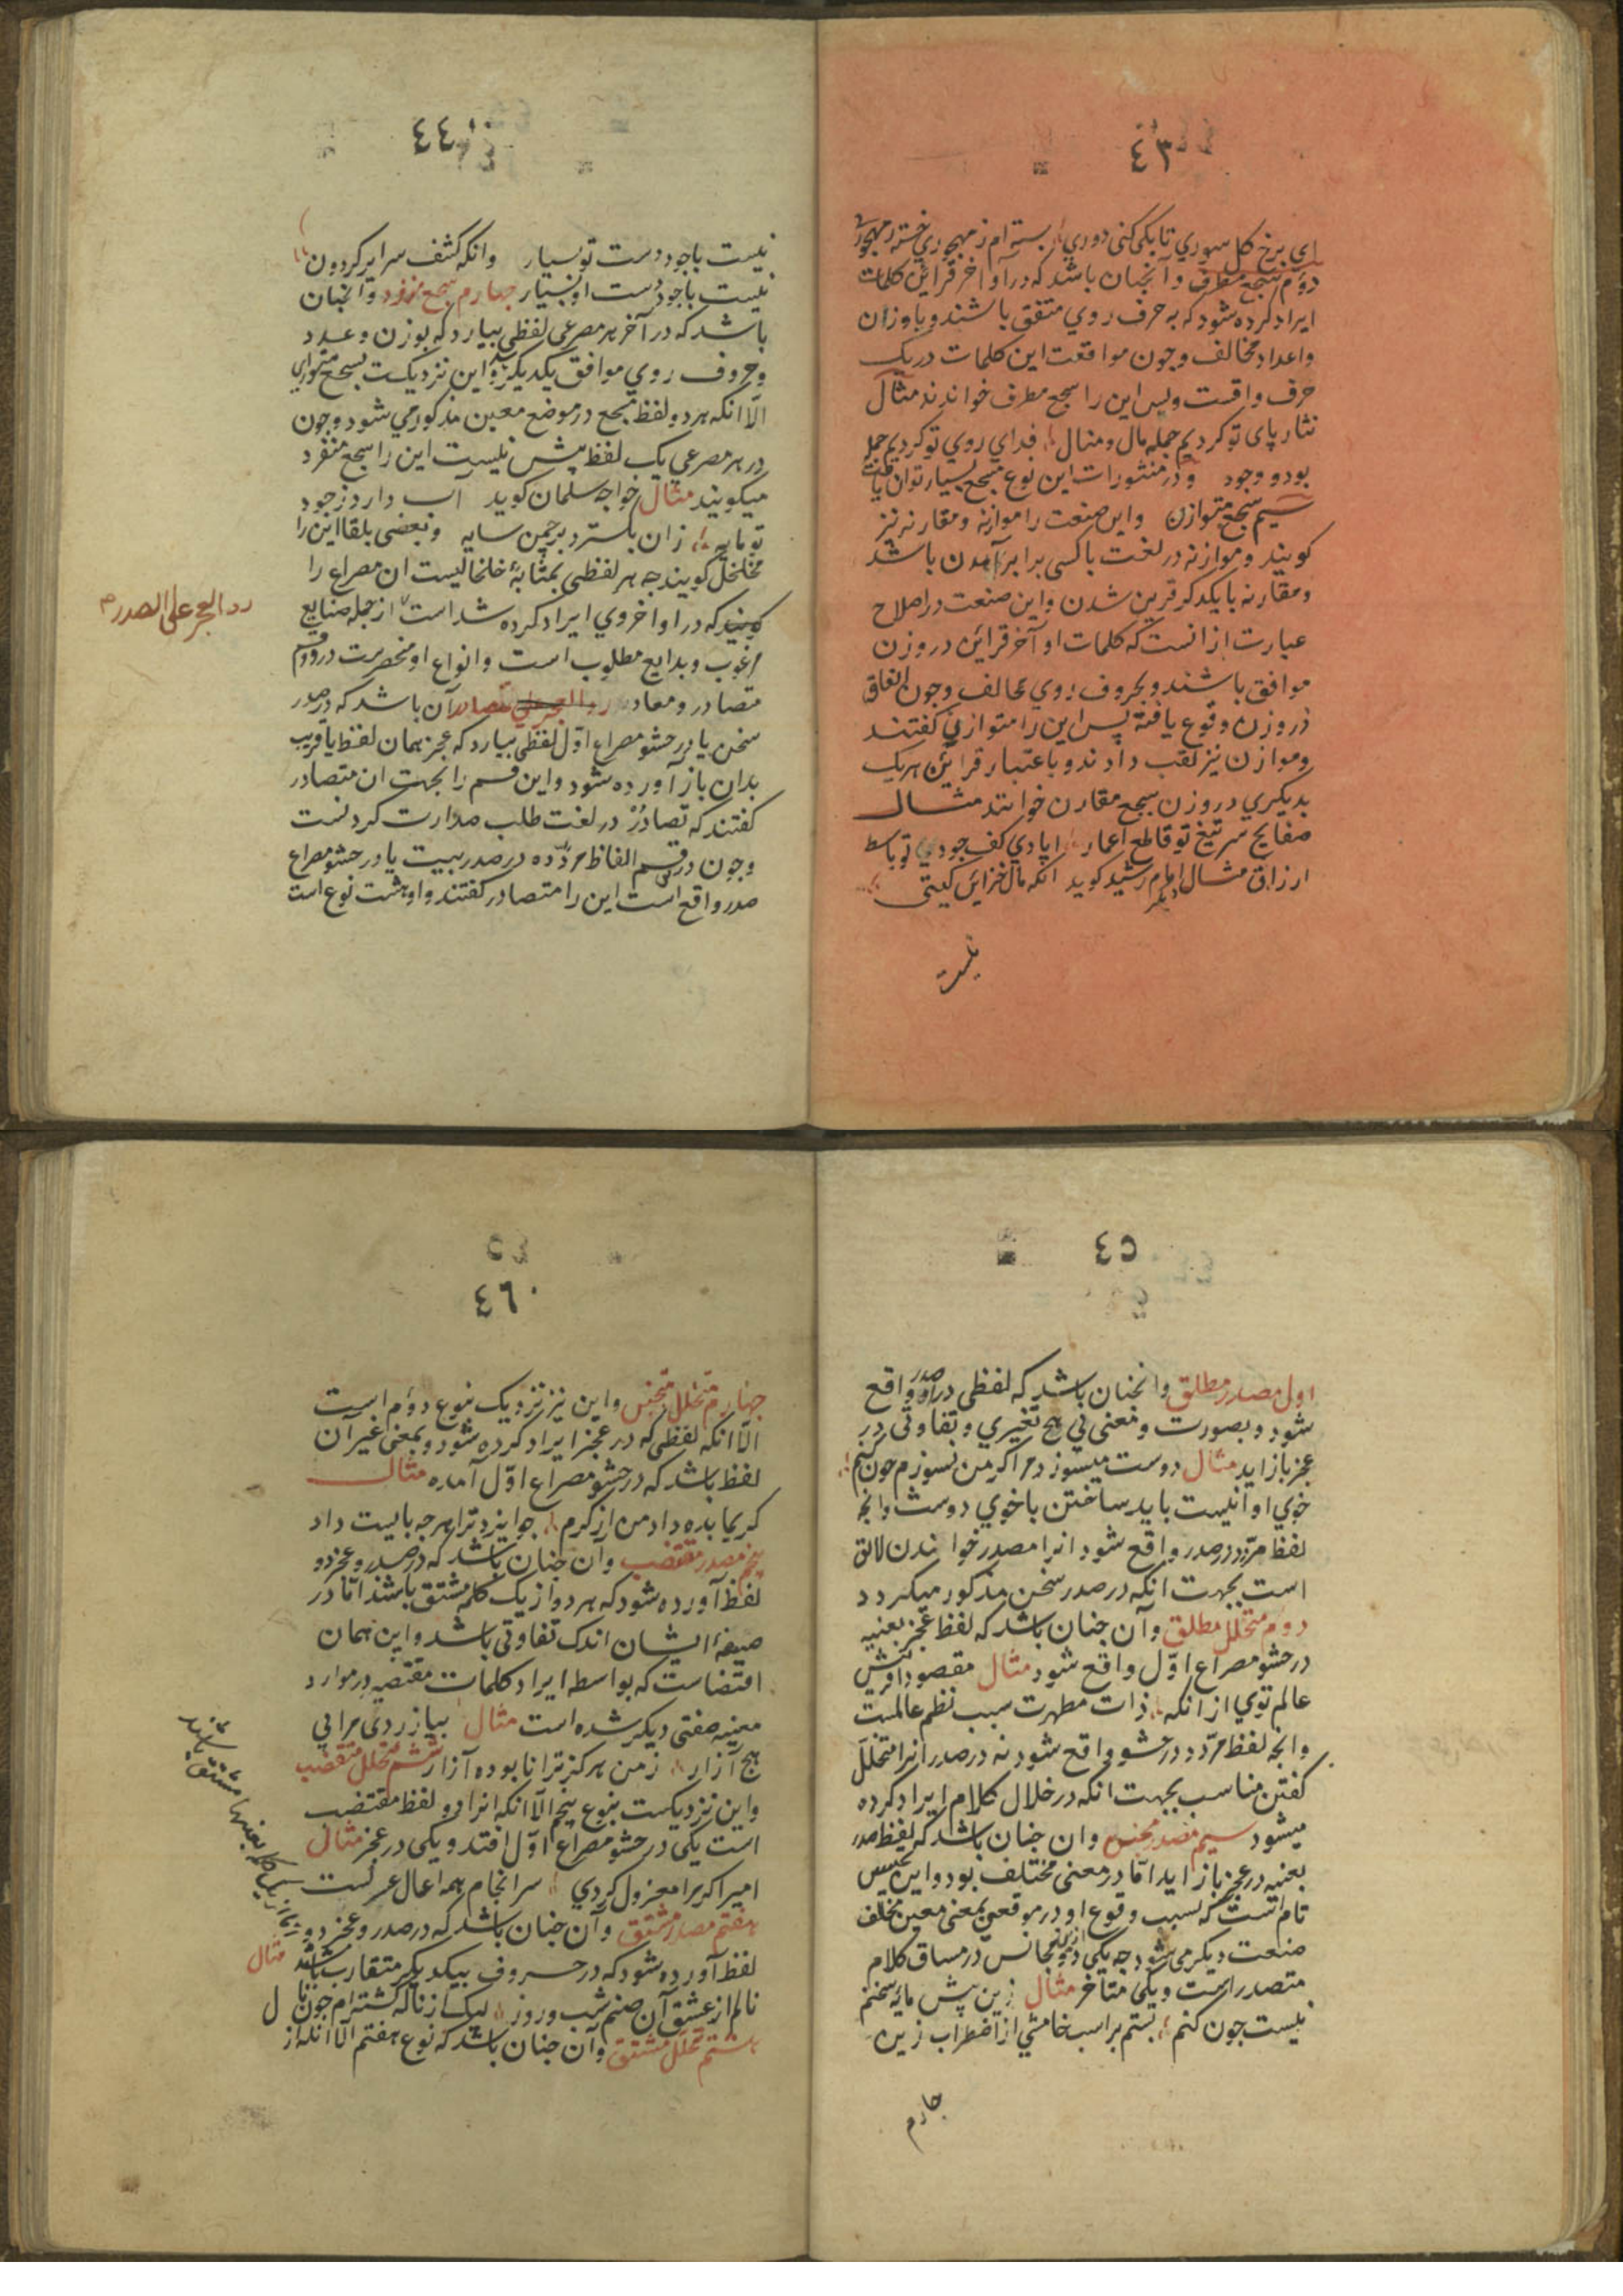 ٤٣
ای برخ کل سوري تا بکی کنی دوري بسته ام ز مهجوري خسته ز مهجوري
دوم سجع مطرف وآنجنان باشد که در اواخر قراین کلمات
ایراد کرده شود که بحرف روي متفق باشند و باوزان
واعداد مخالف وجون موافقت این کلمات در یک
حرف واقست وبس این را سجع مطرف خواندند مثال
نثار پای تو کردیم جمله مال ومنال فدای روي تو کردیم جمله
بود و وجود و در منثورات این نوع سجع بسیار توان یافت
سیم سجع متوازن واین صنعت را موازنه ومقارنه نیز
کویند وموازنه در لغت با کسی برابر آمدن باشد
ومقارنه با یکدکر قرین شدن واین صنعت در اصلاح
عبارت از انست که کلمات اواخر قراین در وزن
موافق باشند وبحروف روي مخالف وجون اتفاق
در وزن وقوع یافته پس این را متوازن کفتند
وموازن نیز لقب دادند و باعتبار قراین هریک
بدیکري در وزن سجع مقارن خوانند مثال
صفایح سر تیغ تو قاطع اعمار ایادي کف جود تو باسط
ارزاق مثال دیکر امام رشید کوید انکه مال خزاین کیتی
نیست
٤٤
نیست با جود دست تو بسیار وانکه کشف سرایر کردون
نیست با جود دست او بسیار جهارم سجع مفرد وآنجنان
باشد که در آخر هر مصرعی لفظی بیارد که بوزن وعدد
وحروف روي موافق یکدیکر واین نزدیکست بسجع متوازي
الّا انکه هر دو لفظ سجع در موضع معین مذکور می شود وجون
در هر مصرعی یک لفظ بیش نیست این را سجع منفرد
میکویند مثال خواجه سلمان کوید آب دارد ز جود
تو مایه زان بکسترد بر جمن سایه وبعضی بلقا این را
مخلخل کویند جه هر لفظی بمثابهٔ خلخالیست ان مصراع را
که در اواخر وي ایراد کرده شد است از جمله صنایع
مرغوب وبدایع مطلوب است وانواع او منحصرست در دو قسم
متصادر ومعاد رد العجز علي الصدر آن باشد که در صدر
سخن یا در حشو مصراع اوّل لفظی بیارد که عجز بهمان لفظ یا قریب
بدان باز آورده شود واین قسم را بجهت ان متصادر
کفتند که تصادُرْ در لغت طلب صدارت کردنست
وجون در قسم الفاظ مردّده در صدر بیت یا در حشو مصراع
صدر واقع است این را متصادر کفتند واو هشت نوع است
رد العجز علی الصدر م
٤٥
اول مصدر مطلق وانجنان باشد که لفظی در صدر واقع
شود وبصورت ومعنی بی هیج تغییري وتفاوتی در
عجز باز اید مثال دوست میسوزد مرا کر من نسوزم جون کنم
خوي او انیست باید ساختن با خوي دوست وانجه
لفظ مردّد در صدر واقع شود انرا مصدر خواندن لایق
است بجهت انکه در صدر سخن مذکور میکردد
دوم متخلل مطلق وآن جنان باشد که لفظ عجز بعنیه
در حشو مصراع اوّل واقع شود مثال مقصود افرینش
عالم توي از انکه ذات مطهرت سبب نظم عالمست
وانجه لفظ مردّد در حشو واقع شود نه در صدر انرا متخلّل
کفتن مناسب بجهت انکه در خلال کلام ایراد کرده
میشود سیم مصدر مجنس وان جنان باشد که لفظ صدر
بعنیه در عجز باز اید امّا در معنی مختلف بود واین تجنیس
تام است که بسبب وقوع او در موقعین بمعنی معین مختلف
صنعت دیکر می شود جه یکی از دو مجانس در مساق کلام
متصدر است ویکی متاخر مثال زین پیش مایه سخنم
نیست جون کنم بستم بر اسب خامشي از اضطراب زین
جهارم
٤٦
جهارم متخلل متجنس واین نیز نزدیک بنوع دوّم است
الّا انکه لفظی که در عجز ایراد کرده شود وبمعنی غیر آن
لفظ باشد که در حشو مصراع اوّل آمده مثال
کریما بده داد من از کرم جو ایزد ترا هر جه بایست داد
پنجم مصدر مقتضب وآن جنان باشد که در صدر وعجز دو
لفظ آورده شود که هر دو از یک کلمه مشتق باشند امّا در
صیغهٔ ایشان اندک تفاوتی باشد واین همان
اقتضاست که بواسطه ایراد کلمات مقتضبه در موارد
معینه صفتی دیکر شده است مثال بیازردی مرا بی
هیج آزار ز من هرکز ترا نابوده آزار ششم متخلل مقتضب
واین نزدیکست بنوع پنجم الّا انکه انرا دو لفظ مقتضب
است یکی در حشو مصراع اوّل افتد ویکی در عجز مثال
امیرا کر مرا معزول کردي سرانجام همه اعمال عزلست
هفتم مصدر مشتق وآن جنان باشد که در صدر وعجز دو
لفظ آورده شود که در حروف بیکدیکر متقارب باشند مثال
نالم از عشق آن صنم شب وروز لیک از ناله کشته ام جون نال
هشتم متخلل مشتق وآن جنان باشد که نوع هفتم الّا انکه از